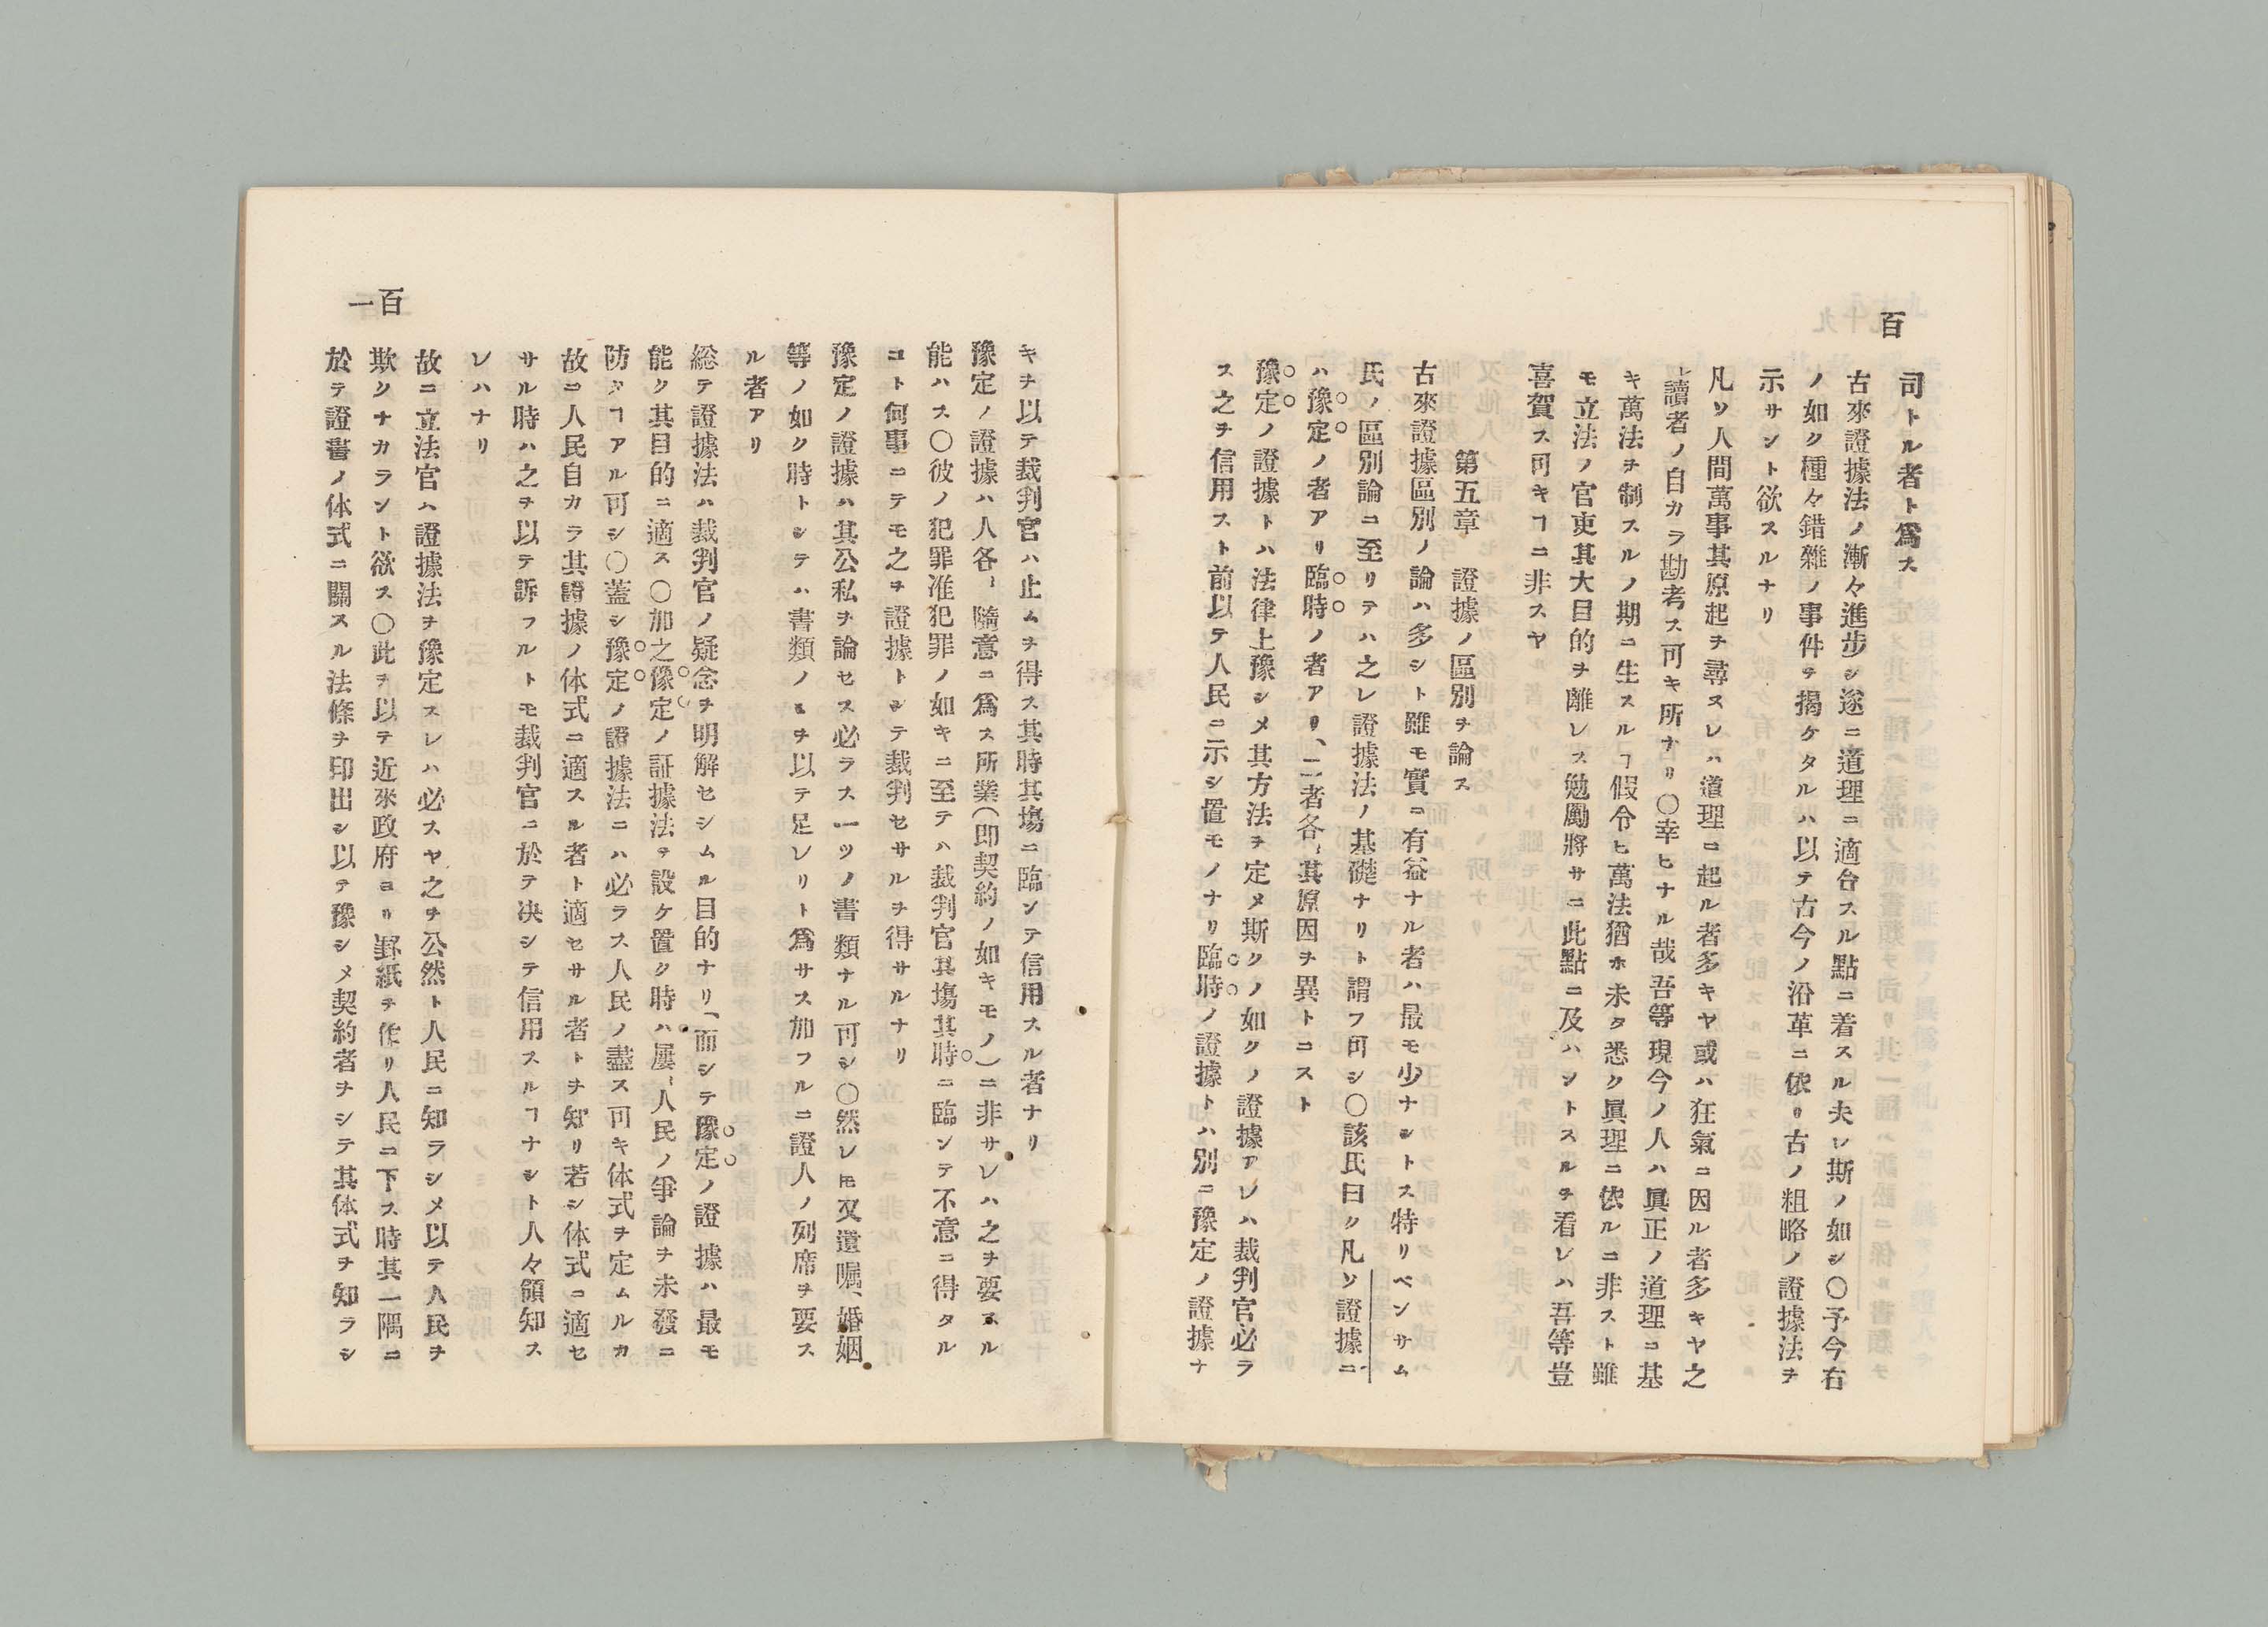 百
司トル者ト爲ス
古來證據法ノ漸々進步シ遂ニ道理ニ適合スル點ニ着スル夫レ斯ノ如シ〇予今右
ノ如ク種々錯雜ノ事件ヲ揭ケタルハ以テ古今ノ沿革ニ依リ古ノ粗略ノ證據法ヲ
示サント欲スルナリ
凡ソ人間萬事其原起ヲ尋ヌレハ道理ニ起ル者多キヤ或ハ狂氣ニ因ル者多キヤ之
レ讀者ノ自カラ勘考ス可キ所ナリ〇幸ヒナル哉吾等現今ノ人ハ眞正ノ道理ニ基
キ萬法ヲ制スルノ期ニ生スルヿ假令ヒ萬法猶ホ未タ悉ク眞理ニ依ルニ非スト雖
モ立法ノ官吏其大目的ヲ離レス勉勵將サニ此點ニ及ハントスルヲ看レハ吾等豈
喜賀ス可キヿニ非スヤ
第五章 證據ノ區別ヲ論ス
古來證據區別ノ論ハ多シト雖モ實ニ有益ナル者ハ最モ少ナシトス特リベンサム
氏ノ區別論ニ至リテハ之レ證據法ノ基礎ナリト謂フ可シ〇該氏曰ク凡ソ證據ニ
ハ豫定ノ者アリ臨時ノ者アリ、二者各〻其原因ヲ異トニスト
豫定ノ證據トハ法律上豫シメ其方法ヲ定メ斯クノ如クノ證據アレハ裁判官必ラ
ス之ヲ信用スト前以テ人民ニ示シ置モノナリ臨時ノ證據トハ別ニ豫定ノ證據ナ
百一
キヲ以テ裁判官ハ止ムヲ得ス其時其塲ニ臨ンテ信用スル者ナリ
豫定ノ證據ハ人各〻隨意ニ爲ス所業(即契約ノ如キモノ)ニ非サレハ之ヲ要スル
能ハス〇彼ノ犯罪准犯罪ノ如キニ至テハ裁判官其塲其時ニ臨ンテ不意ニ得タル
コト何事ニテモ之ヲ證據トシテ裁判セサルヲ得サルナリ
豫定ノ證據ハ其公私ヲ論セス必ラス一ツノ書類ナル可シ〇然レ𪜈又遺囑、婚姻
等ノ如ク時トシテハ書類ノミヲ以テ足レリト爲サス加フルニ證人ノ列席ヲ要ス
ル者アリ
総テ證據法ハ裁判官ノ疑念ヲ明解セシムル目的ナリ、而シテ豫定ノ證據ハ最モ
能ク其目的ニ適ス〇加之豫定ノ証據法ヲ設ケ置ク時ハ屢〻人民ノ爭論ヲ未發ニ
防クヿアル可シ〇蓋シ豫定ノ證據法ニハ必ラス人民ノ盡ス可キ体式ヲ定ムルカ
故ニ人民自カラ其證據ノ体式ニ適スル者ト適セサル者トヲ知リ若シ体式ニ適セ
サル時ハ之ヲ以テ訴フルトモ裁判官ニ於テ决シテ信用スルヿナシト人々領知ス
レハナリ
故ニ立法官ハ證據法ヲ豫定スレハ必スヤ之ヲ公然ト人民ニ知ラシメ以テ人民ヲ
欺クナカラント欲ス〇此ヲ以テ近來政府ヨリ罫紙ヲ作リ人民ニ下ス時其一隅ニ
於テ證書ノ体式ニ關スル法條ヲ印出シ以テ豫シメ契約者ヲシテ其体式ヲ知ラシ